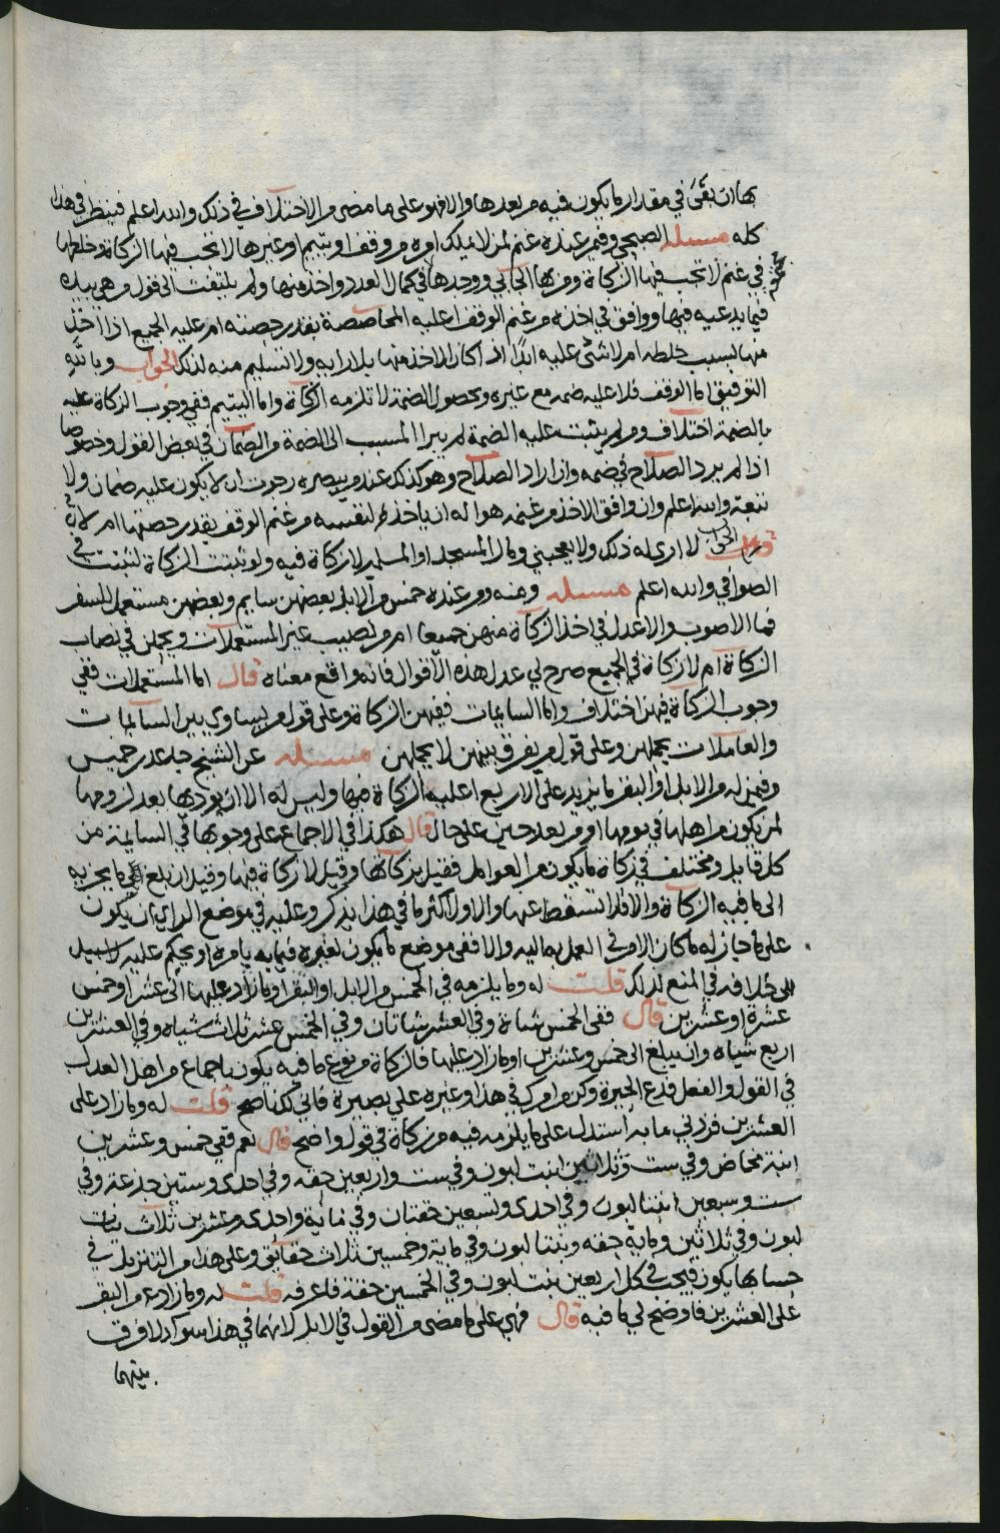 بها ان بقى في مقدار ما يكون فيه من بعدها والا فهو على ما مضى من الاختلاف في ذلك والله اعلم فينظر في هذا
كله مسئلة الصبحي وفيمن عنده غنم لمن لا يملك امره من وقف او يتيم او غيرها لا تجب فيها الزكاة وخلطها
في غنم لا تجب فيها الزكاة ومر بها الجابي ووجدها في كمال العدد واخذ منها ولم يلتفت الى قول من هي بيده
فيما يدعيه فيها ووافق في اخذه من غنم الوقف اعليه المحاصصة بقدر حصته ام عليه الجميع اذا اخذ
منها بسبب خلطه ام لا شئ عليه ابدًا اذ كان الاخذ منها بلا رايه ولا تسليم منه لذلك الجواب وبالله
التوفيق اما الوقف فلا عليه ضمه مع غيره وبحصول الضمة لا تلزمه الزكاة واما اليتيم ففي وجوب الزكاة عليه
بالضمة اختلاف ومن لم يثبت عليه الضمة لم يبرا المسبب الى الضمة من الضمان في بعض القول وخصوصا
اذا لم يرد الصلاح في ضمه وان اراد الصلاح وهو كذلك عند من يبصره رجوت ان لا يكون عليه ضمان ولا
تبعة والله اعلم وان وافق الاخذ من غنمه هو اله ان ياخذ لنفسه من غنم الوقف بقدر حصتها ام لا
الجواب لا ارى له ذلك ولا يعجبني ومال المسجد او المسلمين لا زكاة فيه ولو ثبتت الزكاة لثبتت في
الصوافي والله اعلم مسئلة ومنه ومن عنده خمس من الابل بعضهن سايم وبعضهن مستعمل للسفر
فما الاصوب والاعدل في اخذ الزكاة منهن جميعا ام من نصيب غير المستعملات ويحملن في نصاب
الزكاة ام لا زكاة في الجميع صرح لي عدل هذه الاقوال فانه واقع معناه قال اما المستعملات ففي
وجوب الزكاة فيهن اختلاف واما السايمات ففيهن الزكاة وعلى قول من يساوي بين السايمات
والعاملات يحملهن وعلى قول من يفرق بينهن لا يحملهن مسئلة عن الشيخ جاعد بن خميس
وفيمن له من الابل او البقر ما يزيد على الاربع اعليه الزكاة فيها وليس له الا ان يؤديها بعد لزومها
لمن يكون من اهلها في يومها او من بعد حين على حال قال هكذا في الاجماع على وجوبها في السايمة من
كل قايل ومختلف في زكاة ما يكون من العوامل فقيل بزكاتها وقيل لا زكاة فيها وقيل ان بلغ ما يجز به
الى ما فيه الزكاة والا فلا تسقط عنها والاول اكثر ما في هذا يذكر وعليه في موضع الراي ان يكون
على ما جاز له ما كان الامر في العمل بها اليه والا ففي موضع ما يكون لغيره فيما به يامره او يحكم عليه لا سبيل
الى خلافه في المنع لذلك قلت له وما يلزمه في الخمس من الابل او البقر او ما زاد عليها الى عشر او خمس
عشرة او عشرين قال ففي الخمس شاة وفي العشر شاتان وفي الخمس عشر ثلاث شياه وفي العشرين
اربع شياه وان يبلغ الى خمس وعشرين او ما زاد عليها فالزكاة من نوع ما فيه يكون باجماع من اهل العدل
في القول والفعل فدع الحيرة وكن من امرك في هذا وغيره على بصيرة فاني لك ناصح قلت له وما زاد على
العشرين فزدني ما به استدل على ما يلزمه فيه من زكاة في قول واضح قال نعم ففي خمس وعشرين
ابنة مخاض وفي ست وثلاثين ابنت لبون وفي ست واربعين حقه وفي احدى وستين جذعة وفي
ست وسبعين ابنتا لبون وفي احدى وتسعين حقتان وفي مائة واحدى وعشرين ثلاث بنات
لبون وفي ثلاثين ومائة حقه وبنتا لبون وفي ماية وخمسين ثلاث حقائق وعلى هذا من التنزيل في
حسابها يكون فيجب في كل اربعين بنت لبون وفي الخمسين حقة فاعرفه قلت له وما زاد من البقر
على العشرين فاوضح لي ما فيه قال فهي على ما مضى من القول في الابل لانهما في هذا سواء لا فرق
بينهما